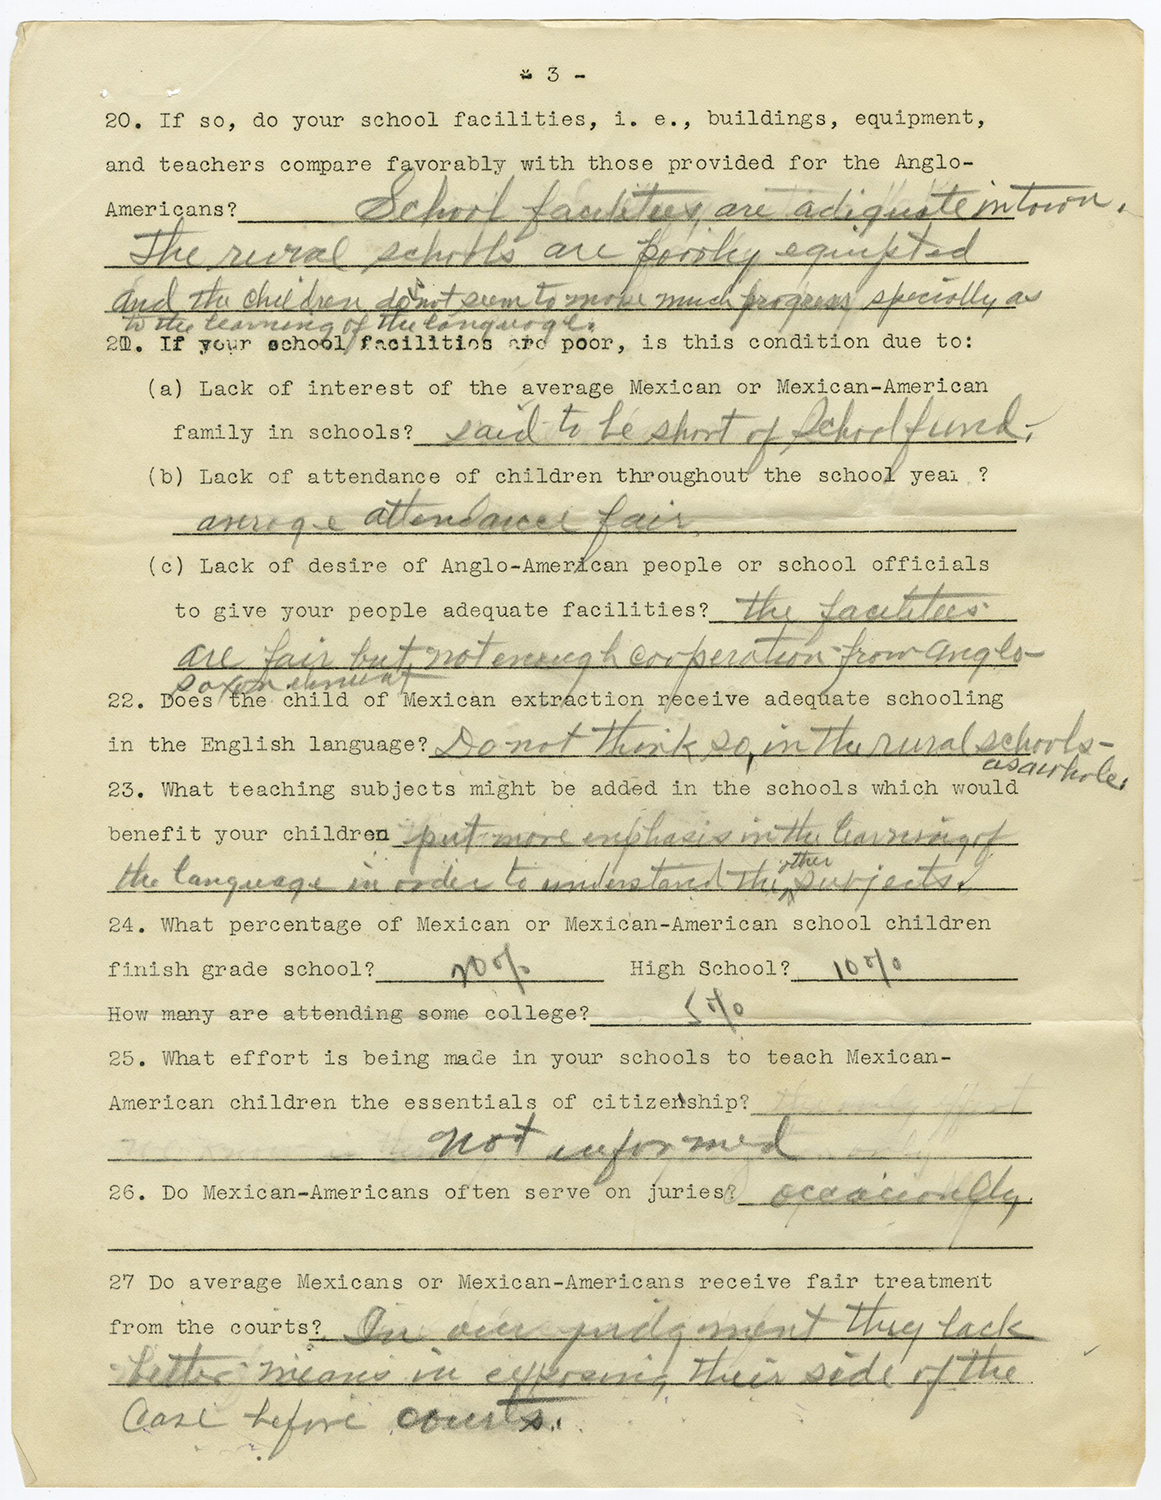 - 3 -
20. If so, do your school facilities, i. e., buildings, equipment,
and teachers compare favorably with those provided for the Anglo-
Americans? School facilities, are adiquate in town.
The rural schools are poorly equipted
and the children do not seem to make much progress, specially as
to the learning of the language.
21. If your school facilities are poor, is this condition due to:
(a) Lack of interest of the average Mexican or Mexican-American
family in schools? said to be short of School fund.
(b) Lack of attendance of children throughout the school year ?
average attendance fair.
(c) Lack of desire of Anglo-American people or school officials
to give your people adequate facilities? the facilities
are fair but, not enough cooperation from anglo-
saxon element
22. Does the child of Mexican extraction receive adequate schooling
in the English language? Do not think so, in the rural schools-
as a whole.
23. What teaching subjects might be added in the schools which would
benefit your children put more emphasis in the learning of
the language in order to understand the other subjects.
24. What percentage of Mexican or Mexican-American school children
finish grade school? 20% High School? 10%
How many are attending some college? 5%
25. What effort is being made in your schools to teach Mexican-
American children the essentials of citizenship? the only effort
not informed
26. Do Mexican-Americans often serve on juries? occacionlly.
27 Do average Mexicans or Mexican-Americans receive fair treatment
from the courts? In our judgment they lack
better means in exposing their side of the
case before courts.